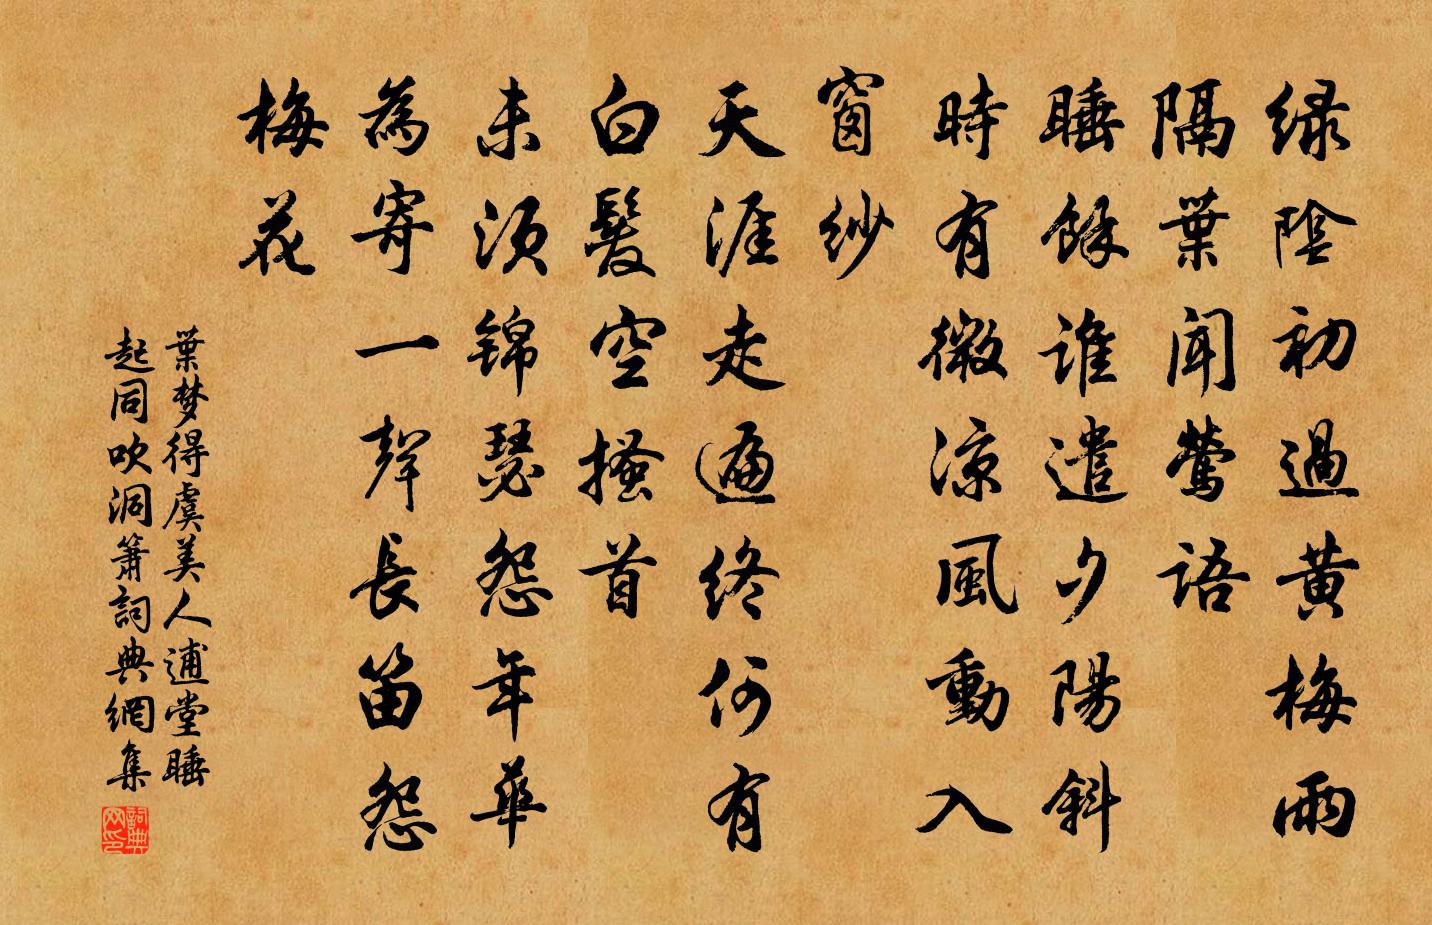 绿陰初過黄梅雨
隔葉聞鶯語
睡餘誰遣夕陽斜
時有微涼風動入
窗紗
天涯走遍終何有
白髮空搔首
未須錦瑟怨年華
為寄一聲長笛怨
梅花
葉梦得虞美人逋堂睡
起同吹洞簫詞典網集
詞典
网印